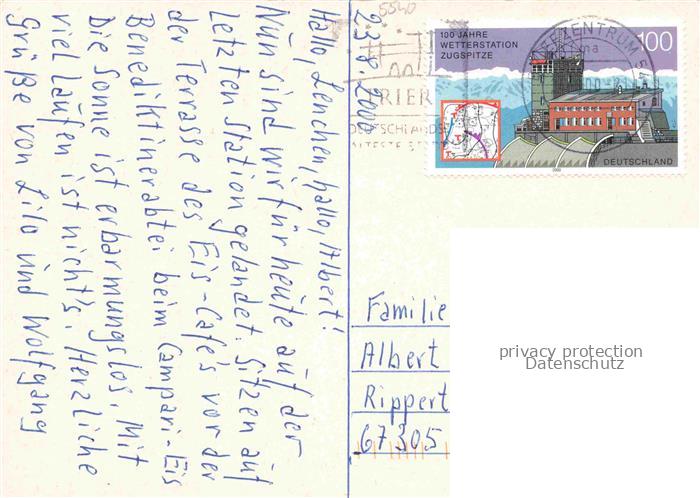 5540
23.8.2000
Hallo, Lenchen, hallo, Albert!
Nun sind wir für heute auf der
Letzten Station gelandet. Sitzen auf
der Terrasse des Eis-Cafe's vor der
Benediktinerabtei beim Campari-Eis
Die Sonne ist erbarmungslos. Mit
viel laufen ist nicht's. Herzliche
Grüße von Lilo und Wolfgang
100 JAHRE
WETTERSTATION
ZUGSPITZE
100
DEUTSCHLAND
2000
TRIER
DEUTSCHLANDS
ÄLTESTE
BRIEFZENTRUM 54
Familie
Albert
Rippert
67305
privacy protection
Datenschutz